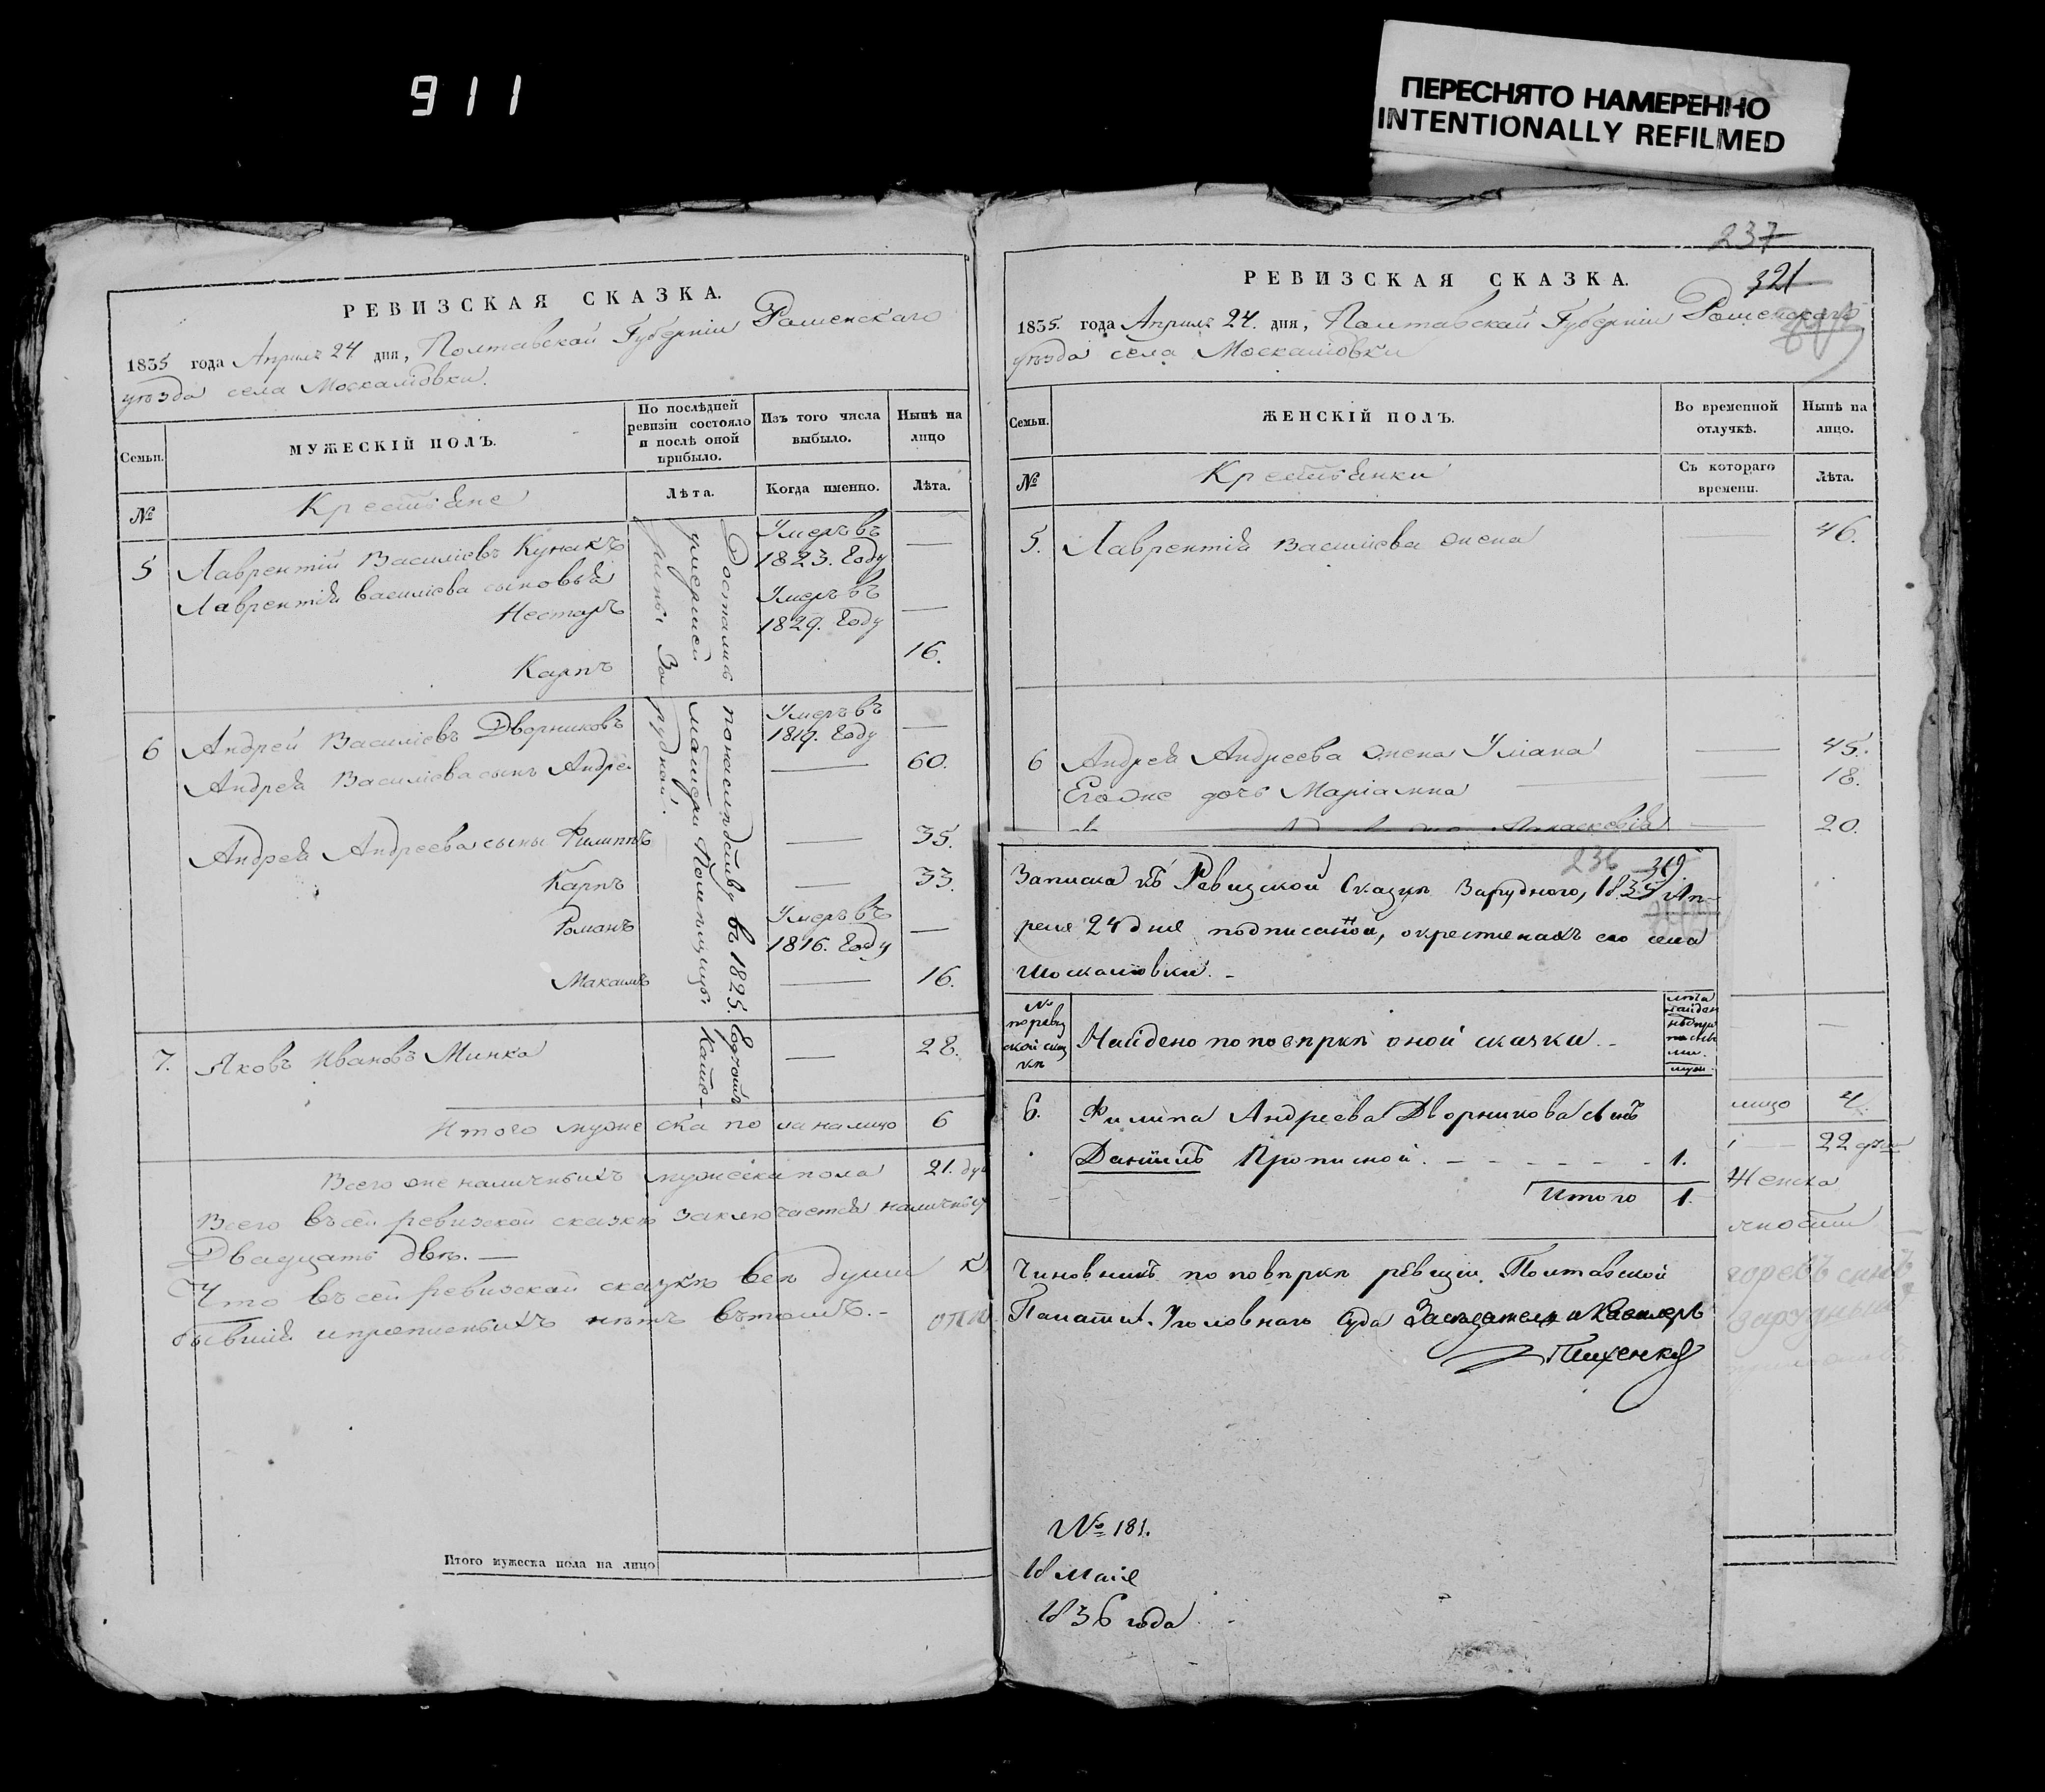 911
ПЕРЕСНЯТО НАМЕРЕННО
INTENTIONALLY REFILMED
РЕВИЗСКАЯ СКАЗКА.
1835 года Апреля 24 дня, Полтавской Губернии Роменского
уезда села Москалювки.
Семьи.
МУЖЕСКІЙ ПОЛЪ.
По послѣдней ревизіи состояло и послѣ оной прибыло.
Изъ того числа выбыло.
Нынѣ на лицо
№
Крестьяне
Лѣта.
Когда именно.
Лѣта.
5 Лаврентій Василіевъ Кунакъ Умеръ въ 1823. Году —
Лаврентія Василіева сыновья
Несторъ Умеръ въ 1829. Году —
Карпъ 16.
6 Андрей Василіевъ Дворниковъ Умеръ въ 1819. Году —
Андрея Василіева сынъ Андрей — 60.
Андрея Андреева сыны Филиппъ — 35.
Карпъ — 33.
Романъ Умеръ въ 1816. Году —
Максимъ — 16.
7. Яковъ Ивановъ Минка — 28.
Достались по наследству въ 1825. Году отъ
умершей матери Помѣщицы Кате-
рины Зарудной.
Итого мужеска пола на лицо 6
Всего же наличныхъ мужеска пола 21. ду
Всего въ сей ревизской сказке заключается наличныхъ
Двадцать две. —
Что въ сей ревизской сказкѣ все души
бывшія и прописныхъ нѣтъ въ томъ. —
Итого мужеска пола на лицо
237
РЕВИЗСКАЯ СКАЗКА.
321
1835. года Апреля 24. дня, Полтавской Губернии Роменского
уезда села Москалювки
Семьи.
ЖЕНСКІЙ ПОЛЪ.
Во временной отлучкѣ.
Нынѣ на лицо.
№
Крестьянки
Съ котораго времени.
Лѣта.
5. Лаврентія Василиева жена — 46.
6 Андрея Андреева жена Уліана — 45.
Егоже дочь Маріамна — 18.
Параскевія — 20.
236 319
Записка къ Ревизской Сказке Зарудного, 1835 Ап-
реля 24 дня подписанной, о крестьянахъ его села
Москалювки. —
№ по ревизской сказкѣ
Найдено по поверке оной сказки. —
6. Филипа Андреева Дворникова сынъ
Даніилъ Прописной. — — — — — — 1.
Итого 1.
Чиновникъ по поверке ревизіи, Полтавской
Палаты Уголовнаго Суда Заседатель и Кавалеръ
№ 181.
18 Мая
1836 года
лицо 4.
22 души
Женска